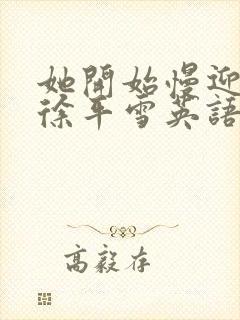 她開始慢迎
徐平雪英語
高毅存